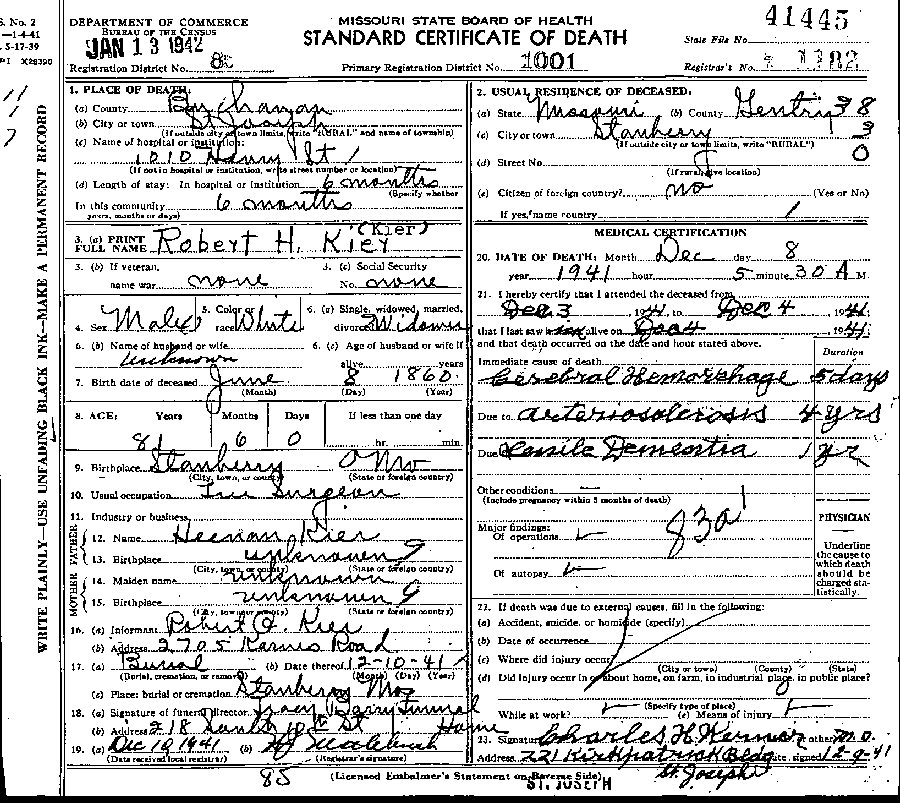 S. No. 2
—1-4-41
5-17-39
PI X28390
DEPARTMENT OF COMMERCE
BUREAU OF THE CENSUS
JAN 13 1942
MISSOURI STATE BOARD OF HEALTH
STANDARD CERTIFICATE OF DEATH
41445
State File No.
Registration District No. 85
Primary Registration District No. 1001
Registrar's No. 1382
WRITE PLAINLY—USE UNFADING BLACK INK—MAKE A PERMANENT RECORD
1. PLACE OF DEATH:
(a) County Buchanan
(b) City or town St Joseph
(If outside city or town limits, write "RURAL" and name of township)
(c) Name of hospital or institution:
1010 Henry St
(If not in hospital or institution, write street number or location)
(d) Length of stay: In hospital or institution 6 months
(Specify whether
In this community 6 months
years, months or days)
3. (a) PRINT FULL NAME Robert H. Kier (Kier)
3. (b) If veteran, name war none
3. (c) Social Security No. none
4. Sex Male
5. Color or race White
6. (a) Single, widowed, married, divorced Widower
6. (b) Name of husband or wife Unknown
6. (c) Age of husband or wife if alive years
7. Birth date of deceased June 8 1860
(Month) (Day) (Year)
8. AGE: Years Months Days If less than one day
81 6 0 hr. min.
9. Birthplace Stanberry Mo
(City, town, or county) (State or foreign country)
10. Usual occupation Tree Surgeon
11. Industry or business
FATHER
12. Name Heenan Kier
13. Birthplace unknown 9
(City, town, or county) (State or foreign country)
MOTHER
14. Maiden name unknown
15. Birthplace unknown 9
(City, town, or county) (State or foreign country)
16. (a) Informant Robert O. Kier
(b) Address 2705 Karnes Road
17. (a) Burial (b) Date thereof 12-10-41
(Burial, cremation, or removal) (Month) (Day) (Year)
(c) Place: burial or cremation Stanberry Mo
18. (a) Signature of funeral director Tracy Barry Funeral Home
(b) Address 218 South 10th St
19. (a) Dec 10, 1941 (b)
(Date received local registrar) (Registrar's signature)
2. USUAL RESIDENCE OF DECEASED:
(a) State Missouri (b) County Gentry 38
(c) City or town Stanberry 3
(If outside city or town limits, write "RURAL")
(d) Street No. 0
(If rural, give location)
(e) Citizen of foreign country? no (Yes or No)
If yes, name country
MEDICAL CERTIFICATION
20. DATE OF DEATH: Month Dec day 8
year 1941 hour 5 minute 30 A M.
21. I hereby certify that I attended the deceased from
Dec. 3, 1941, to Dec 4, 1941;
that I last saw him alive on Dec 4, 1941;
and that death occurred on the date and hour stated above.
Duration
Immediate cause of death
Cerebral Hemorrhage 5 days
Due to arteriosclerosis 4 yrs
Due to Senile Dementia 1 yr
Other conditions
(Include pregnancy within 3 months of death)
Major findings:
Of operations
83a
Of autopsy
PHYSICIAN
Underline the cause to which death should be charged statistically.
22. If death was due to external causes, fill in the following:
(a) Accident, suicide, or homicide (specify)
(b) Date of occurrence
(c) Where did injury occur?
(City or town) (County) (State)
(d) Did injury occur in or about home, on farm, in industrial place, in public place?
(Specify type of place)
While at work? (e) Means of injury
23. Signature Charles H. Werner M.D. or other
Address 721 Kirkpatrick Bldg Date signed 12-9-41
St. Joseph
85
(Licensed Embalmer's Statement on Reverse Side)
ST. JOSEPH